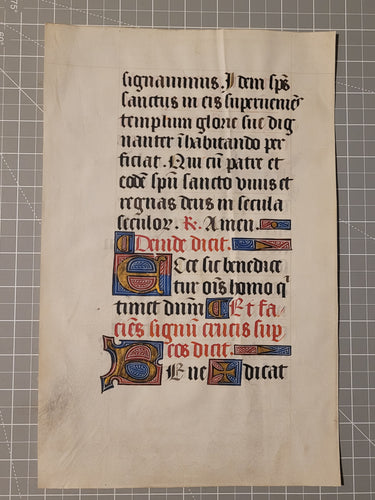 signamimus. Idem sp̄s
sanctus in eis superueniēs
templum glorie sue dig
nanter īhabitando per
ficiat. Qui cū patre et
eodē spū sancto viuis et
regnas deus in secula
seculor. ℟. Amen.
Deinde dicit.
Ecce sic benedice
tur oīs homo q̄
timet dnm̄. Et fa
ciēs signū crucis sup
eos dicit.
Bene ✠ dicat
75°
60°